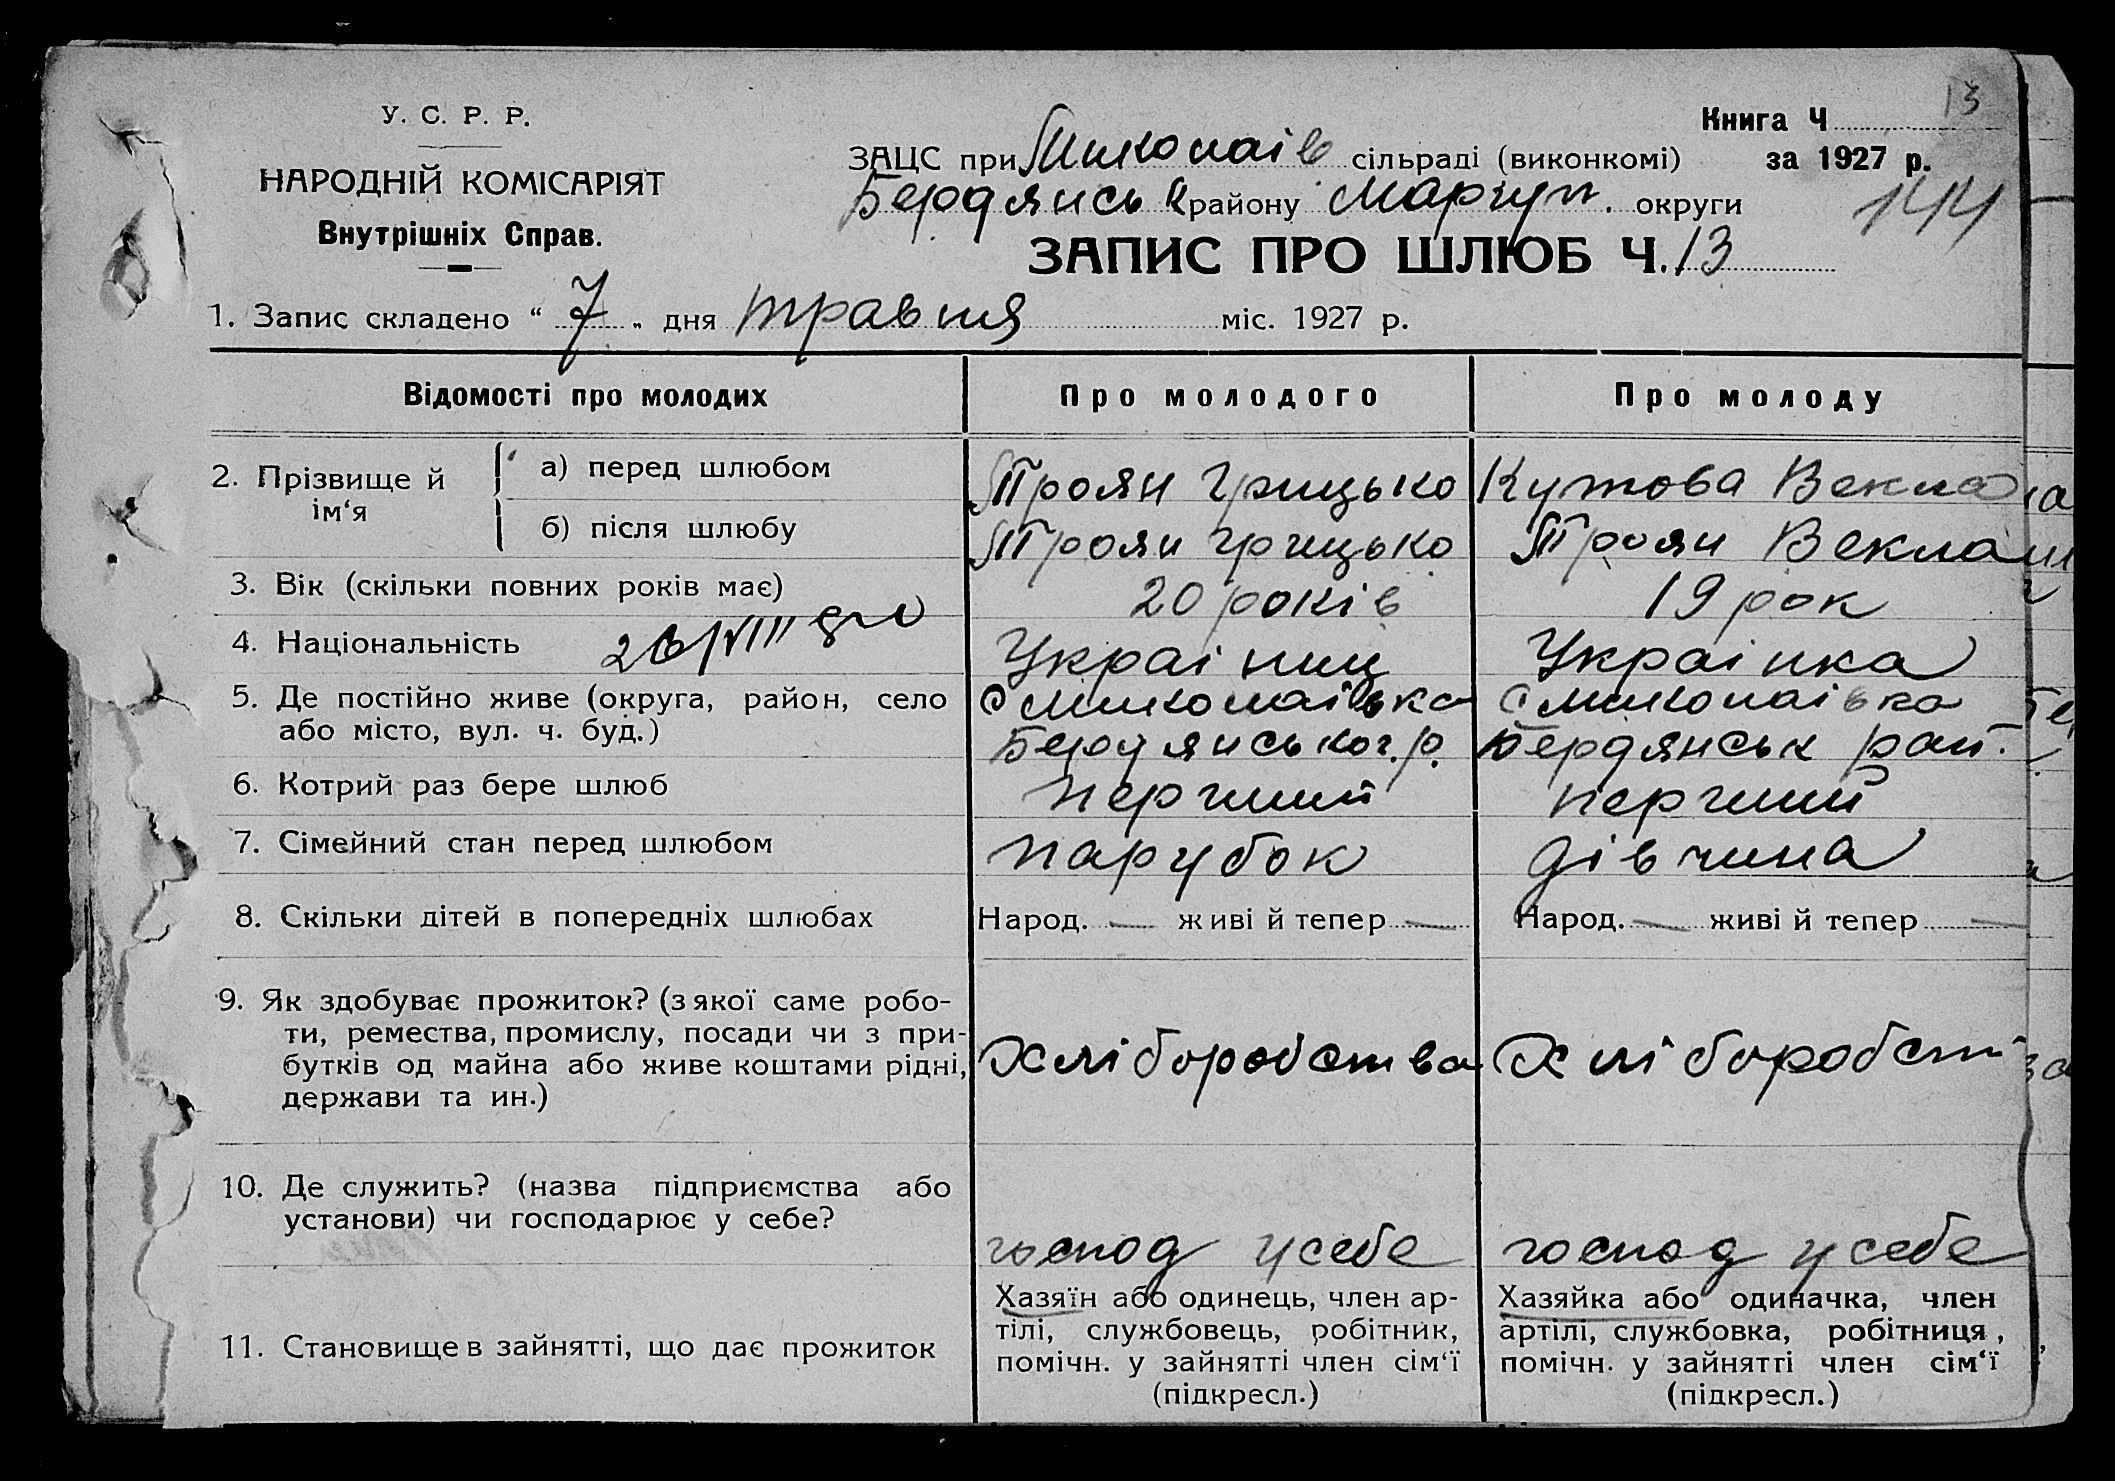 13
У. С. Р. Р.
Книга Ч
ЗАЦС при Миколаїв сільраді (виконкомі) за 1927 р.
НАРОДНІЙ КОМІСАРІЯТ
Бердянськ району Маріуп. округи
144
Внутрішніх Справ.
ЗАПИС ПРО ШЛЮБ Ч. 13
1. Запис складено “ 7 „ дня травня міс. 1927 р.
Відомості про молодих Про молодого Про молоду
2. Прізвище й ім‘я а) перед шлюбом Троян Грицько Кутова Векла
б) після шлюбу Троян Грицько Троян Векла
3. Вік (скільки повних років має) 20 років 19 рок
4. Національність 26/VIII Українец Українка
5. Де постійно живе (округа, район, село с Миколаівка с Миколаівка
або місто, вул. ч. буд.) Бердянського.р. Бердянськ рай.
6. Котрий раз бере шлюб перчиий перчиий
7. Сімейний стан перед шлюбом парубок дівчина
8. Скільки дітей в попередніх шлюбах Народ. — живі й тепер — Народ. — живі й тепер —
9. Як здобуває прожиток? (з якої саме робо-
ти, ремества, промислу, посади чи з при-
бутків од майна або живе коштами рідні, Хліборобства Хліборобст
держави та ин.)
10. Де служить? (назва підприємства або
установи) чи господарює у себе?
господ у себе господ у себе
11. Становище в зайнятті, що дає прожиток
Хазяїн або одинець, член ар-
тілі, службовець, робітник,
помічн. у зайнятті член сім‘ї
(підкресл.)
Хазяйка або одиначка, член
артілі, службовка, робітниця,
помічн. у зайнятті член сім‘ї
(підкресл.)